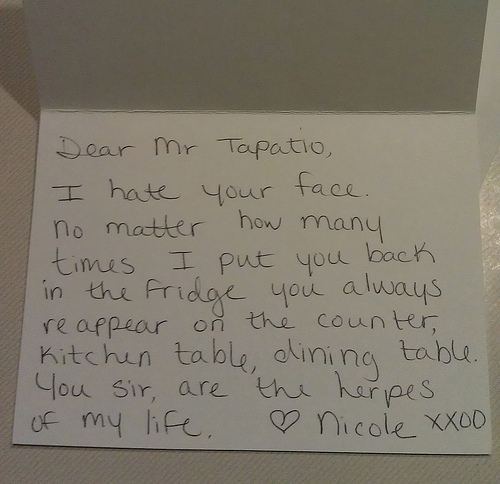 Dear Mr Tapatio,
I hate your face.
no matter how many
times I put you back
in the fridge you always
reappear on the counter,
kitchen table, dining table.
You sir, are the herpes
of my life. ♡ Nicole XXOO